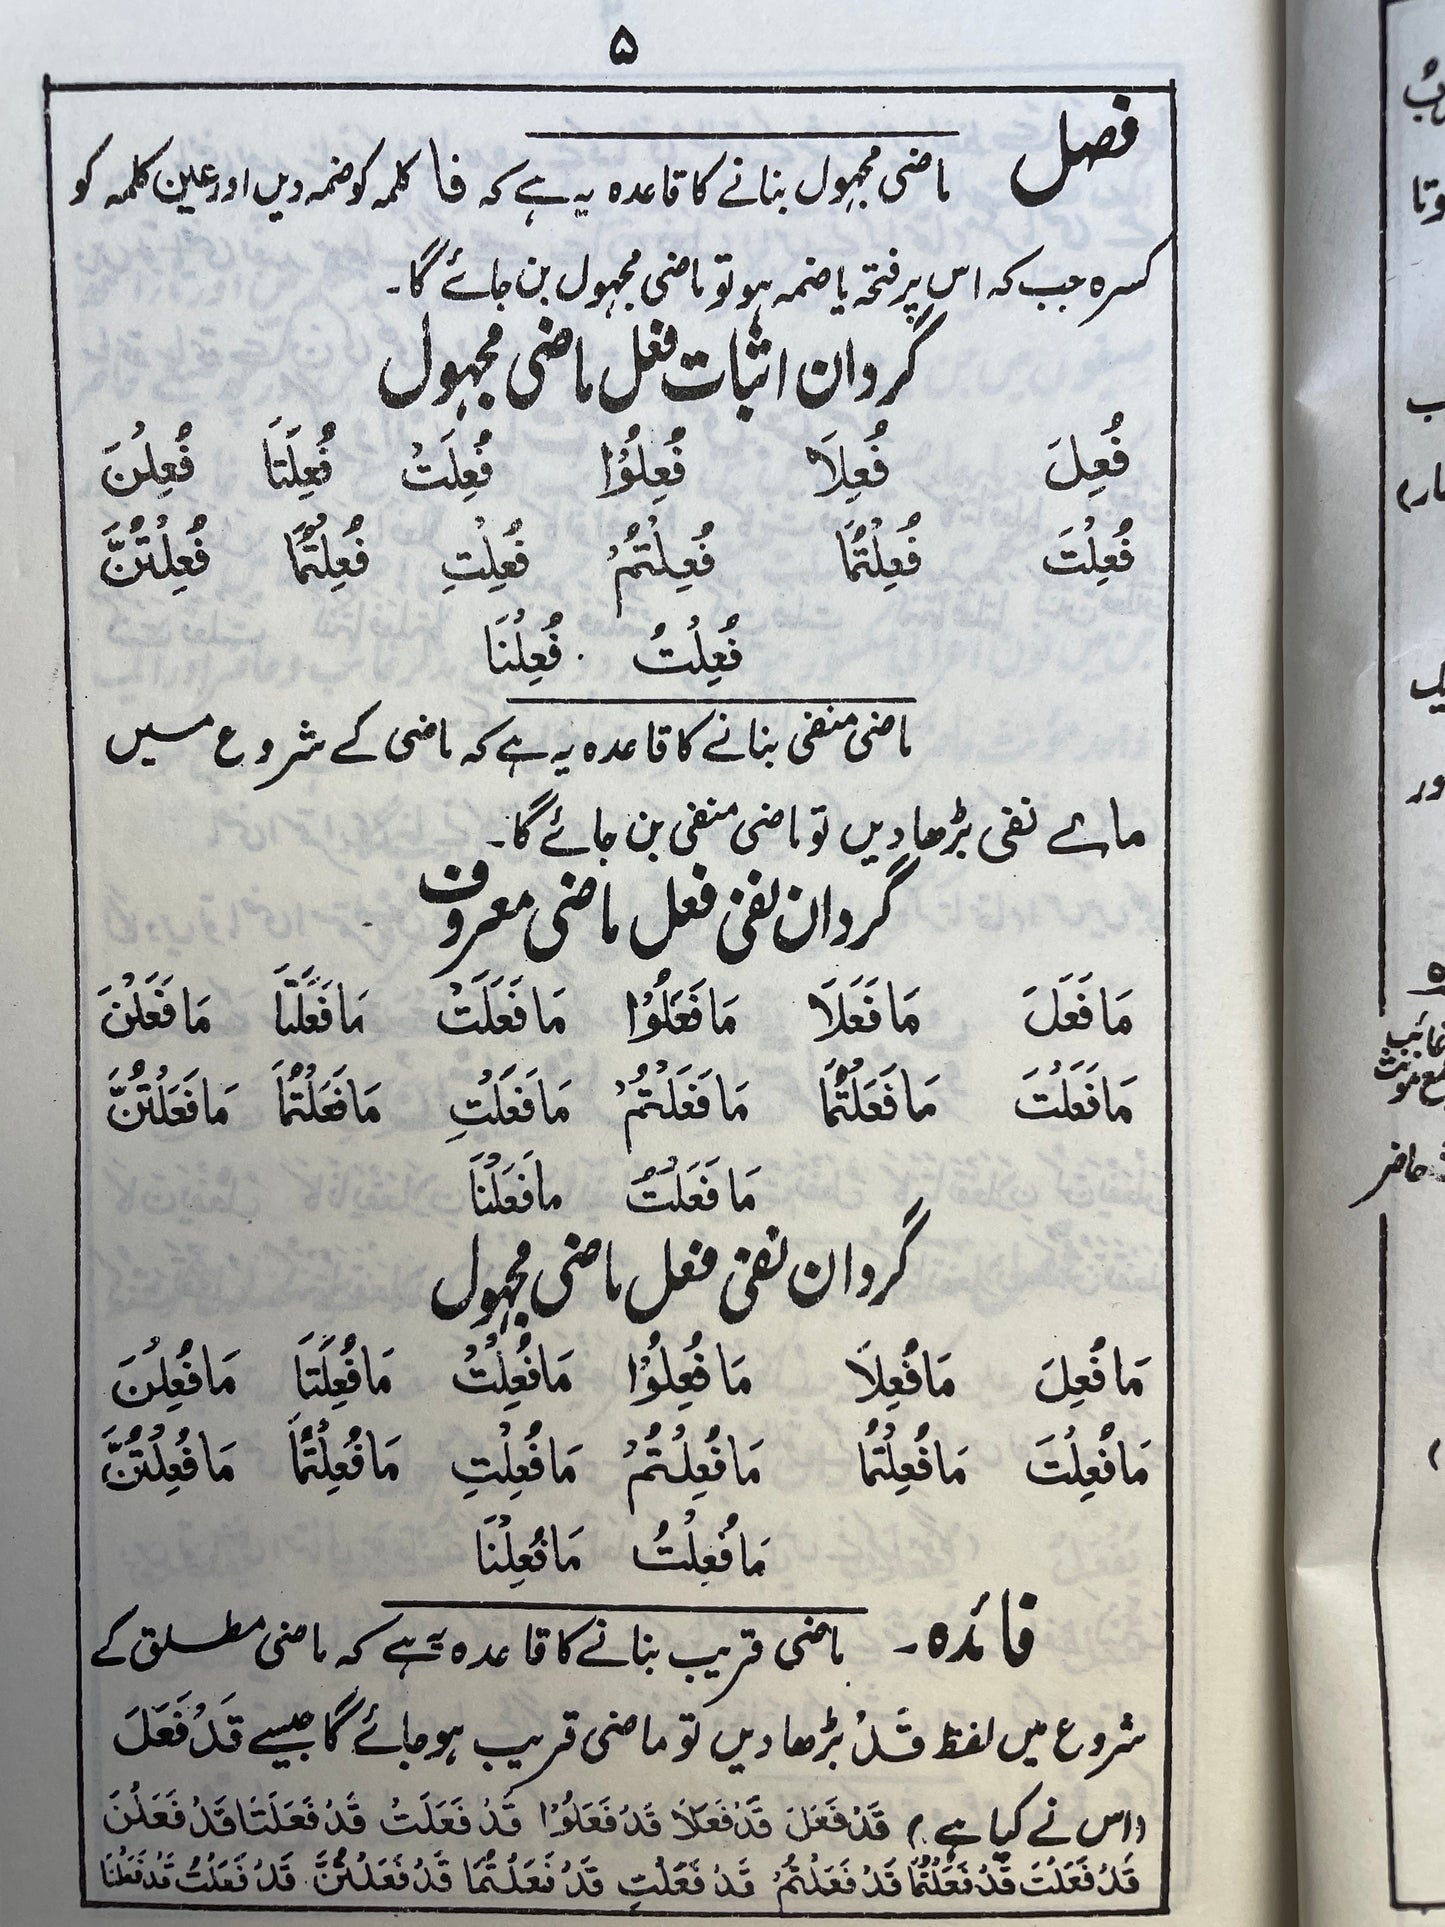 ۵
فصل ماضی مجہول بنانے کا قاعدہ یہ ہے کہ فا کلمہ کو ضمہ دیں اور عین کلمہ کو
کسرہ جب کہ اس پر فتحہ یا ضمہ ہو تو ماضی مجہول بن جائے گا۔
گردان اثبات فعل ماضی مجہول
فُعِلَ فُعِلَا فُعِلُوْا فُعِلَتْ فُعِلَتَا فُعِلْنَ
فُعِلْتَ فُعِلْتُمَا فُعِلْتُمْ فُعِلْتِ فُعِلْتُمَا فُعِلْتُنَّ
فُعِلْتُ فُعِلْنَا
ماضی منفی بنانے کا قاعدہ یہ ہے کہ ماضی کے شروع میں
مائے نفی بڑھا دیں تو ماضی منفی بن جائے گا۔
گردان نفی فعل ماضی معروف
مَا فَعَلَ مَا فَعَلَا مَا فَعَلُوْا مَا فَعَلَتْ مَا فَعَلَتَا مَا فَعَلْنَ
مَا فَعَلْتَ مَا فَعَلْتُمَا مَا فَعَلْتُمْ مَا فَعَلْتِ مَا فَعَلْتُمَا مَا فَعَلْتُنَّ
مَا فَعَلْتُ مَا فَعَلْنَا
گردان نفی فعل ماضی مجہول
مَا فُعِلَ مَا فُعِلَا مَا فُعِلُوْا مَا فُعِلَتْ مَا فُعِلَتَا مَا فُعِلْنَ
مَا فُعِلْتَ مَا فُعِلْتُمَا مَا فُعِلْتُمْ مَا فُعِلْتِ مَا فُعِلْتُمَا مَا فُعِلْتُنَّ
مَا فُعِلْتُ مَا فُعِلْنَا
فائدہ۔ ماضی قریب بنانے کا قاعدہ یہ ہے کہ ماضی مطلق کے
شروع میں لفظ قَدْ بڑھا دیں تو ماضی قریب ہو جائے گا جیسے قَدْ فَعَلَ
(اس نے کیا ہے) قَدْ فَعَلَ قَدْ فَعَلَا قَدْ فَعَلُوْا قَدْ فَعَلَتْ قَدْ فَعَلَتَا قَدْ فَعَلْنَ
قَدْ فَعَلْتَ قَدْ فَعَلْتُمَا قَدْ فَعَلْتُمْ قَدْ فَعَلْتِ قَدْ فَعَلْتُمَا قَدْ فَعَلْتُنَّ قَدْ فَعَلْتُ قَدْ فَعَلْنَا